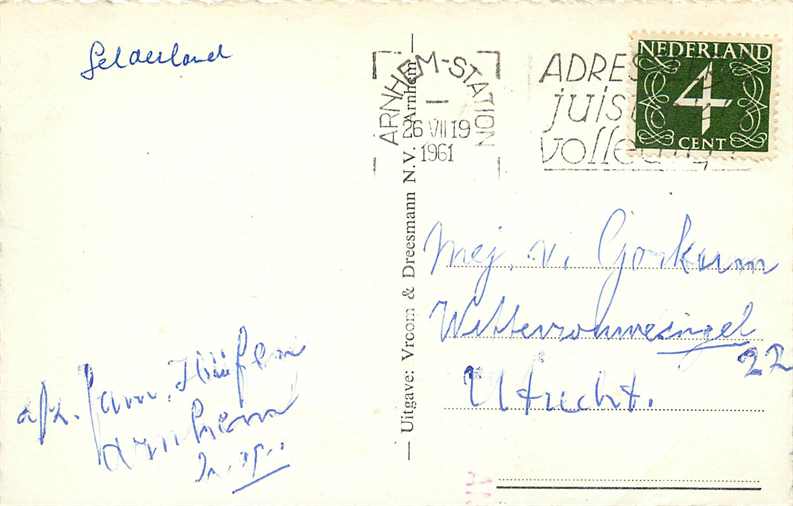 Gelderland
ARNHEM-STATION
26 VII 19
1961
ADRES
juist
volledig
NEDERLAND
4
CENT
— Uitgave: Vroom & Dreesmann N.V. Arnhem —
Mej. v. Gorkum
Wittevrouwesingel
22
Utrecht.
afz. Fam.
Arnhem